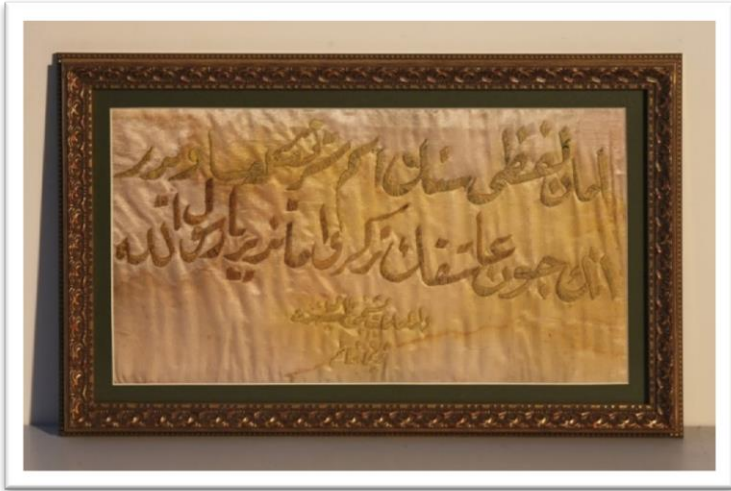 امان لفظی سنك اسم شریفكله مساویدر
انك چون عاشقك ذكری اماندر یا رسول الله